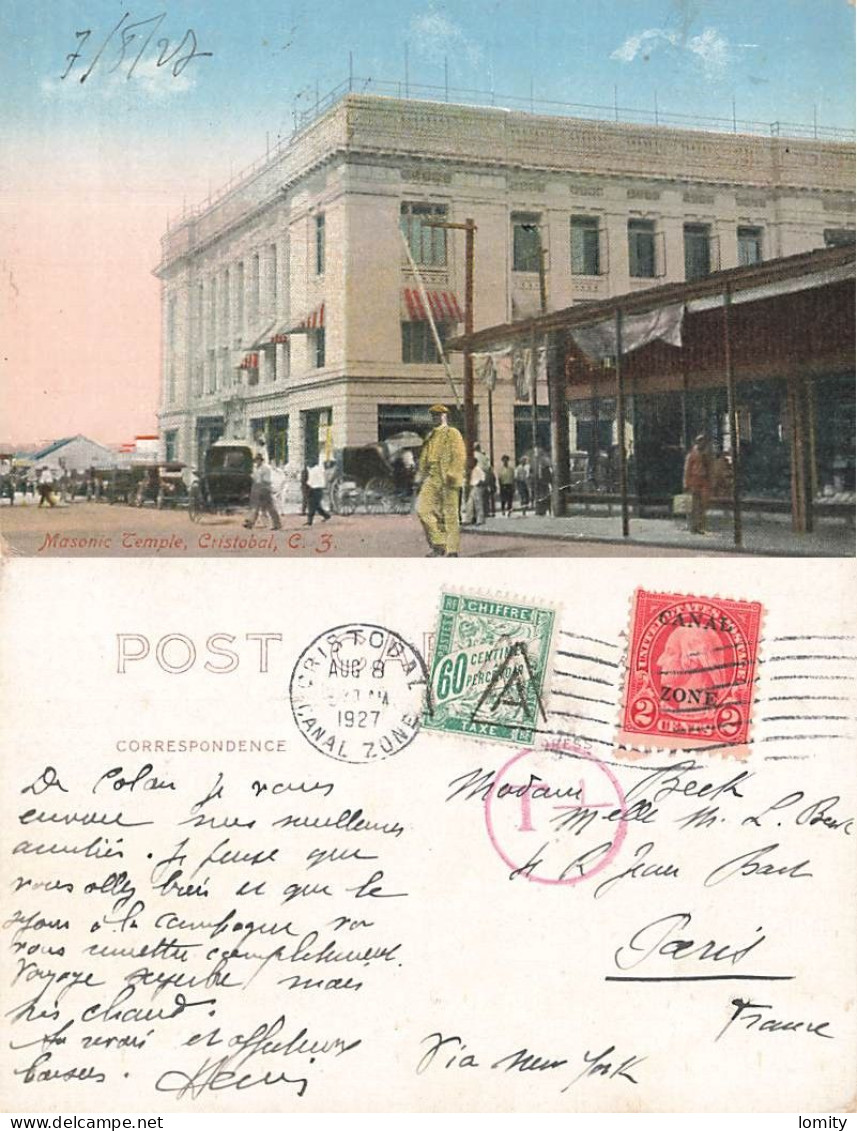 7/8/27
Masonic Temple, Cristobal, C. Z.
POST
CORRESPONDENCE
CRISTOBAL
AUG 8
1927
CANAL ZONE
CHIFFRE
POSTES
60 CENTIMES
A PERCEVOIR
TAXE
RF
CANAL
ZONE
2 CENTS 2
T
De Colon je vous
envoie mes meilleures
amitiés. Je pense que
vous allez bien et que le
séjour à la campagne va
vous remettre complètement.
Voyage superbe mais
très chaud.
Au revoir et affectueux
baisers. Henri
Madame Beck
Melle M. L. Beck
4 R Jean Bart
Paris
France
Via New York
delcampe.net
lomity